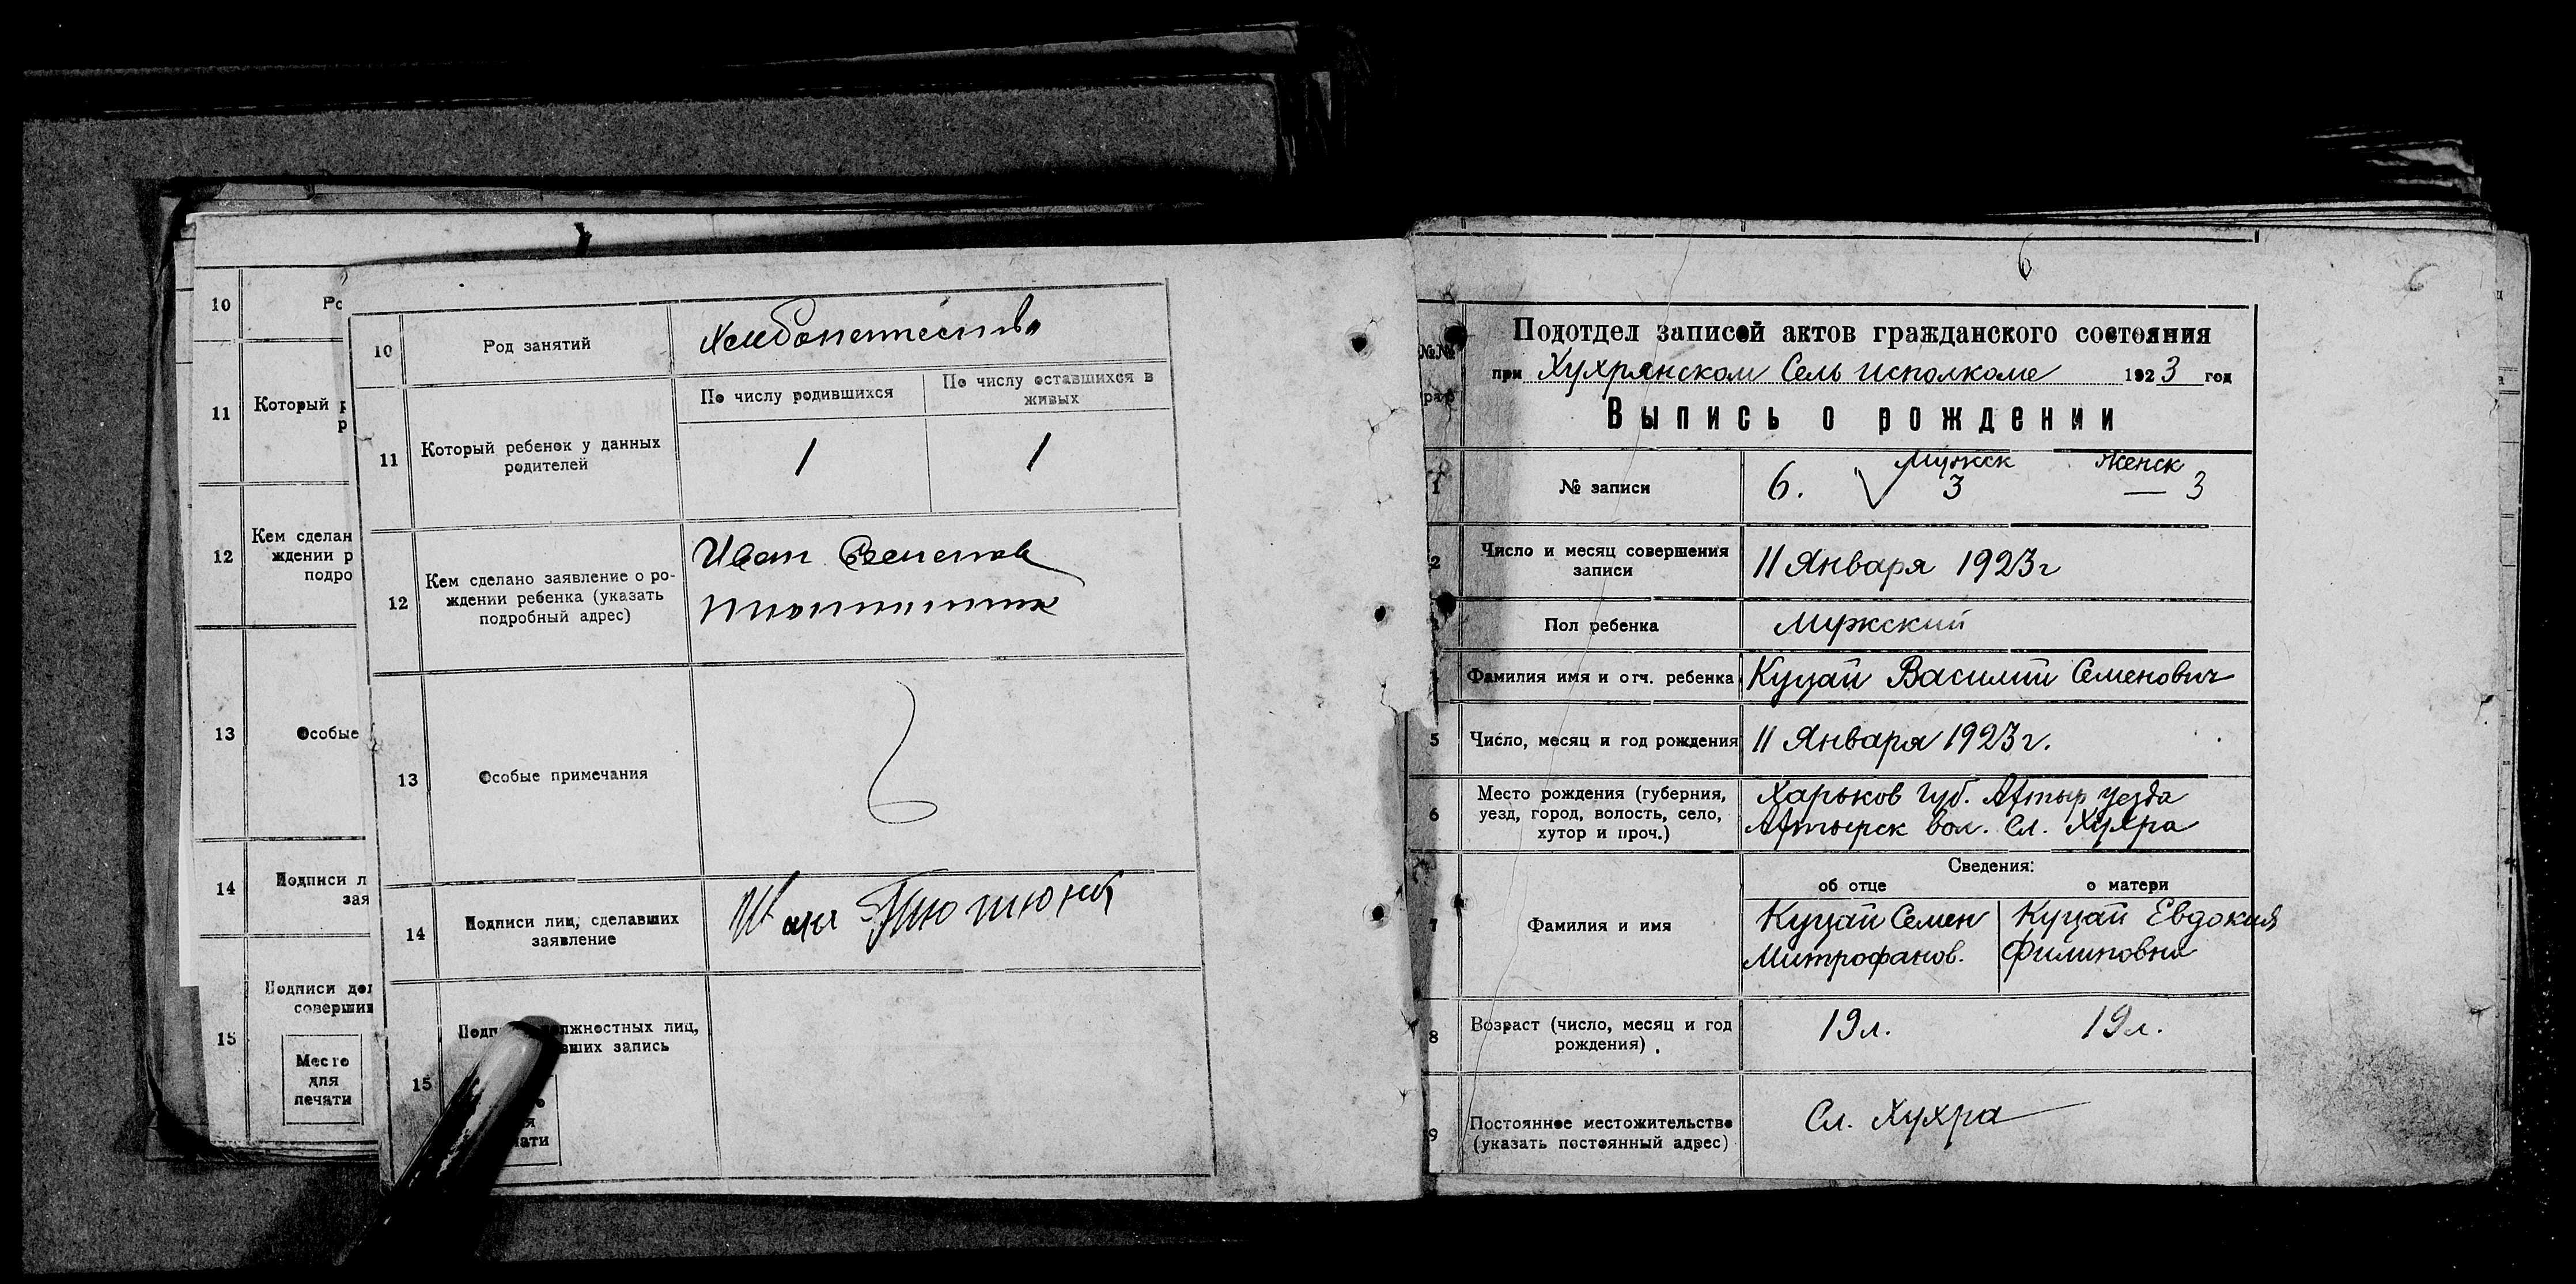 10
Ро
11
Который р
р
12
Кем сделан
ждении р
подро
13
Особые
14
Подписи л
зая
15
Подписи дол
совершив
Место
для
печати
10
Род занятий
Хлебопашество
11
Который ребенок у данных
родителей
По числу родившихся
По числу оставшихся в
живых
1
1
12
Кем сделано заявление о ро-
ждении ребенка (указать
подробный адрес)
Иван Семенов
13
Особые примечания
14
Подписи лиц, сделавших
заявление
Иван Тютюник
15
должностных лиц,
вших запись
ати
6
6
№№
Подотдел записей актов гражданского состояния
при Хухрянском Сель исполкоме 1923 год
Выпись о рождении
1
№ записи
6. Мужск 3 Женск — 3
2
Число и месяц совершения
записи
11 Января 1923г
Пол ребенка
Мужский
Фамилия имя и отч. ребенка
Куцай Василий Семенович
5
Число, месяц и год рождения
11 Января 1923г.
6
Место рождения (губерния,
уезд, город, волость, село,
хутор и проч.)
Харьков губ. Ахтыр уезда
Ахтырск вол. Сл. Хухра
Сведения:
об отце
о матери
7
Фамилия и имя
Куцай Семен
Митрофанов.
Куцай Евдокия
Филиповна
8
Возраст (число, месяц и год
рождения).
19л.
19л.
9
Постоянное местожительство
(указать постоянный адрес)
Сл. Хухра